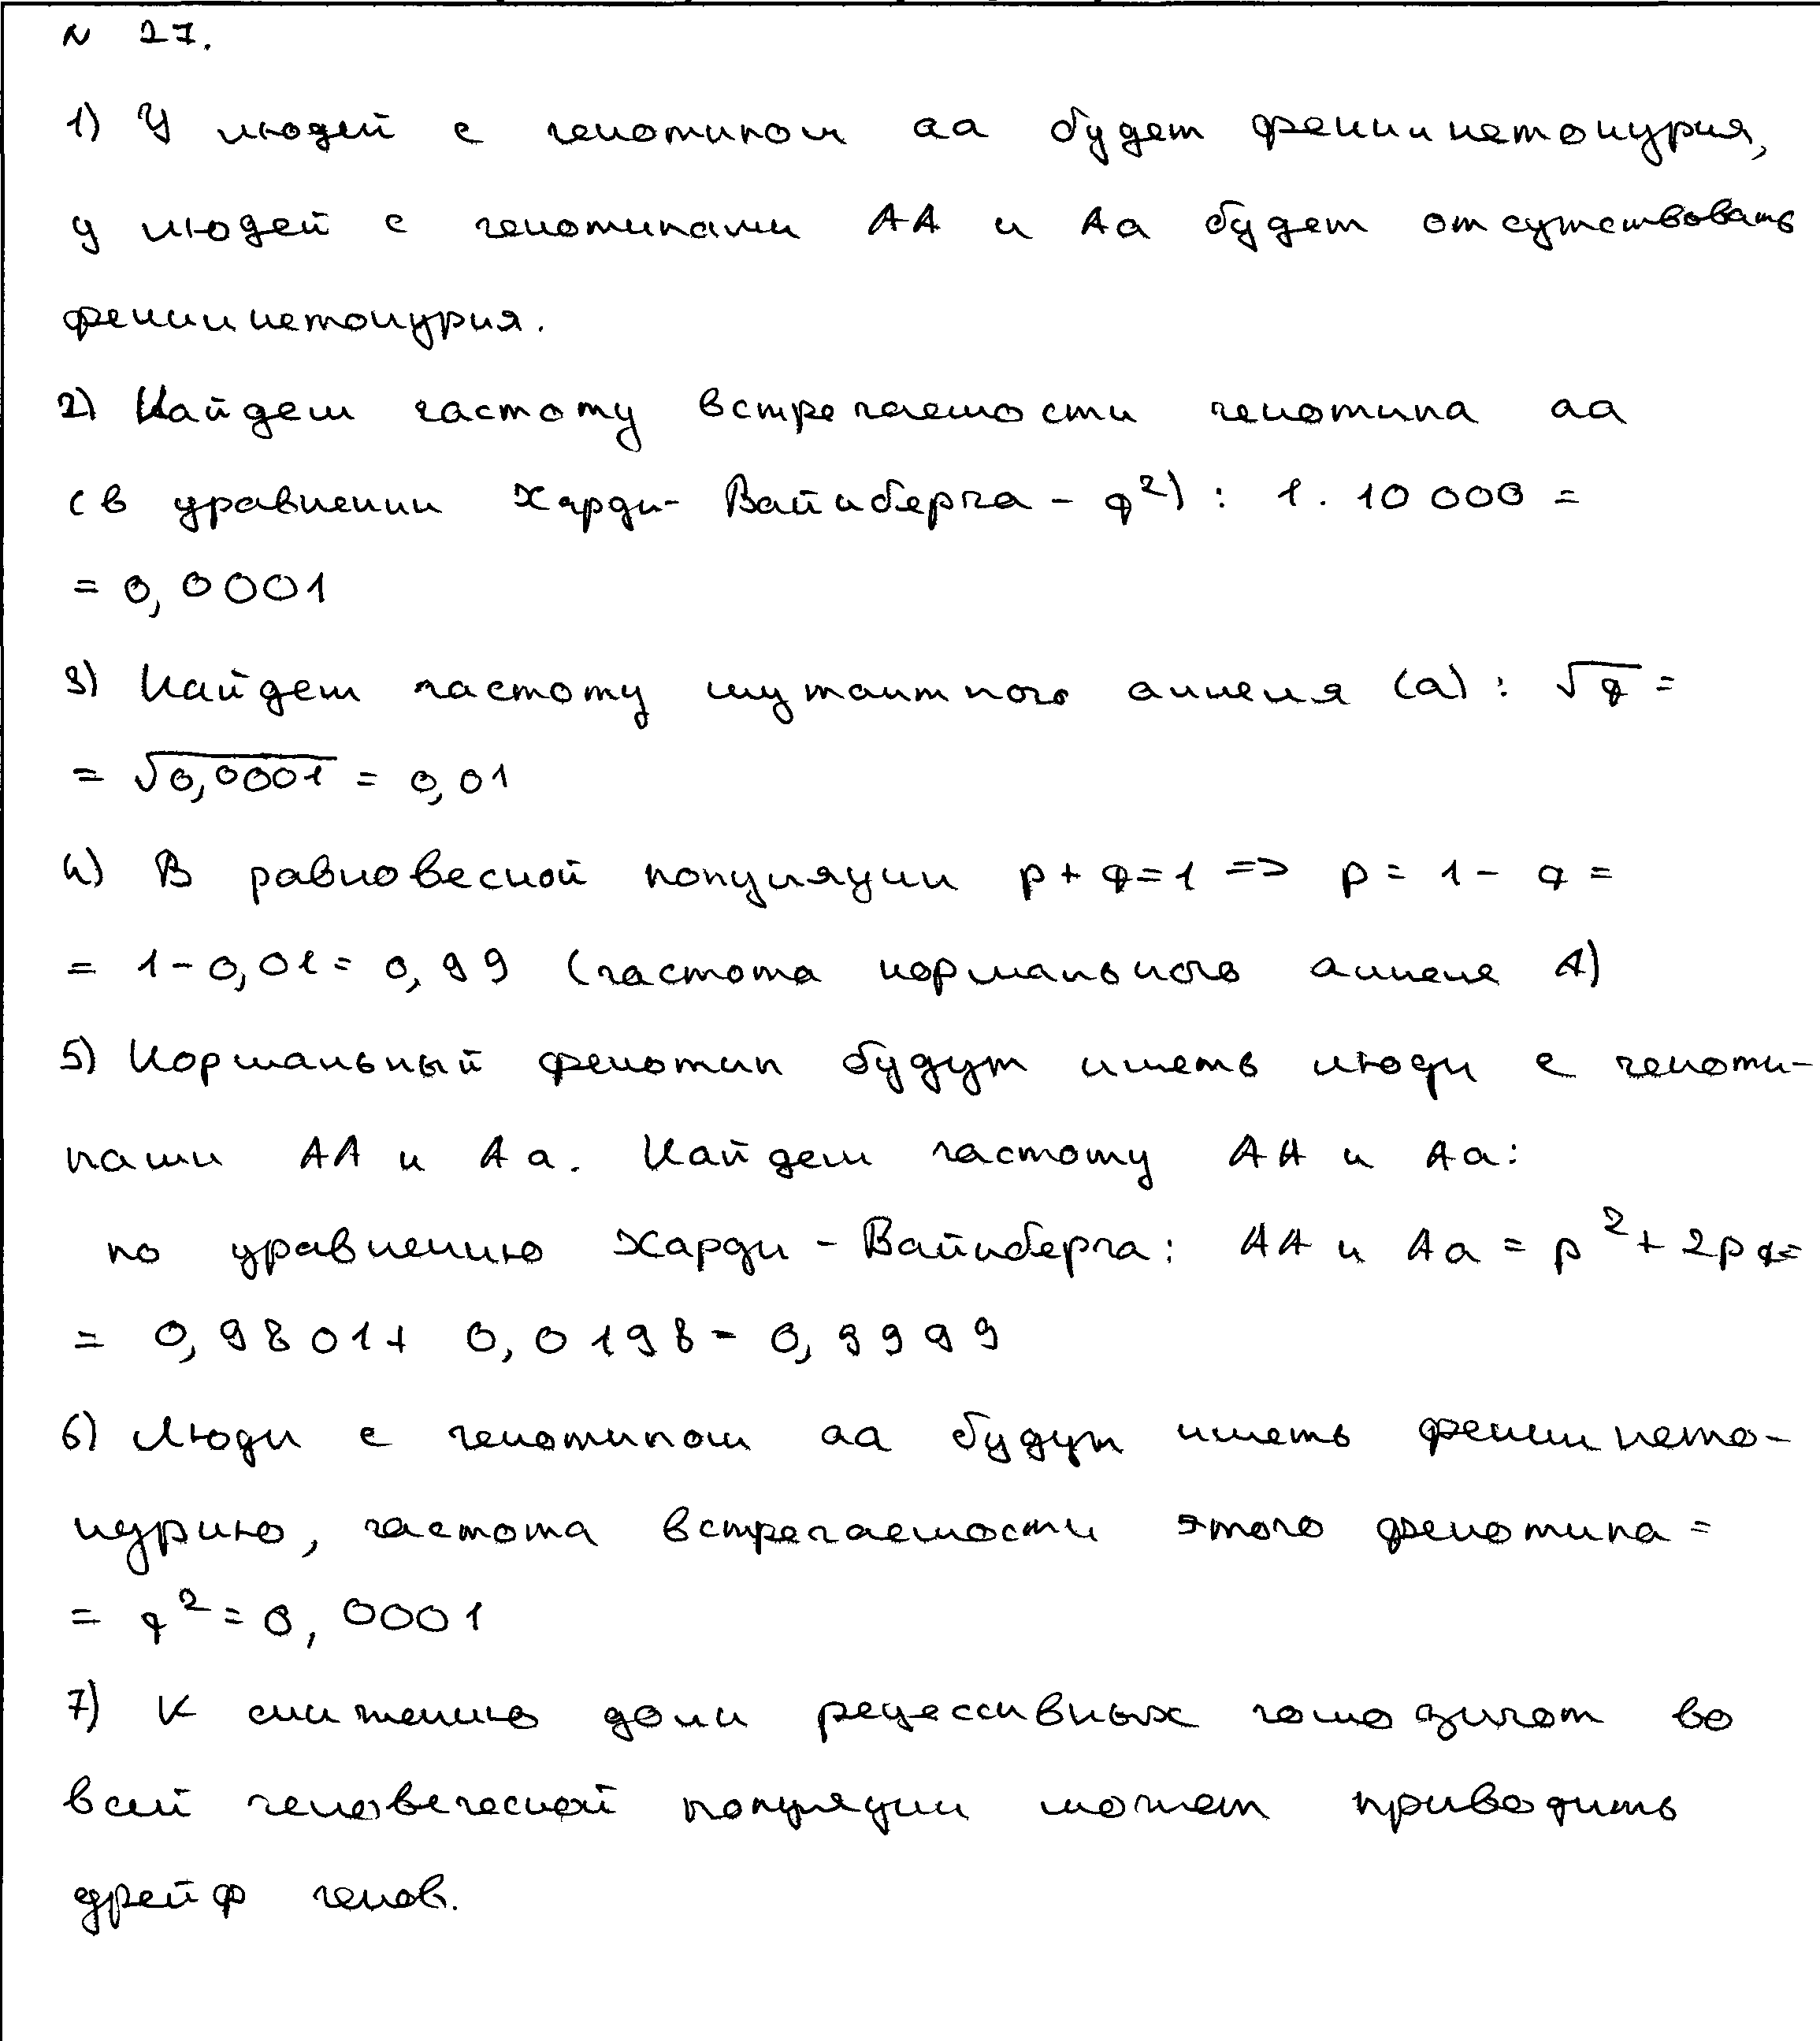 № 27.
1) У людей с генотипом аа будет фенилкетонурия,
у людей с генотипами АА и Аа будет отсутствовать
фенилкетонурия.
2) Найдем частоту встречаемости генотипа аа
(в уравнении Харди-Вайнберга - q²) : 1. 10 000 =
= 0,0001
3) Найдем частоту мутантного аллеля (а) : √q =
= √0,0001 = 0,01
4) В равновесной популяции p + q = 1 => p = 1 - q =
= 1 - 0,01 = 0,99 (частота нормального аллеля А)
5) Нормальный фенотип будут иметь люди с геноти-
пами АА и Аа. Найдем частоту АА и Аа:
по уравнению Харди - Вайнберга: АА и Аа = p² + 2pq =
= 0,9801 + 0,0198 = 0,9999
6) Люди с генотипом аа будут иметь фенилкето-
нурию, частота встречаемости этого фенотипа =
= q² = 0,0001
7) К снижению доли рецессивных гомозигот во
всей человеческой популяции может приводить
дрейф генов.